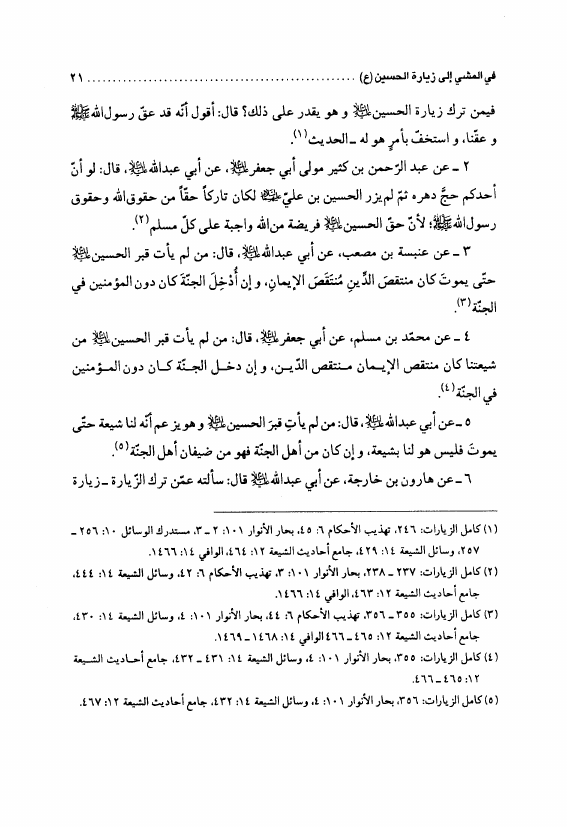 في المشي إلى زيارة الحسين (ع) ..................................................... ٢١
فيمن ترك زيارة الحسين ﷺ و هو يقدر على ذلك؟ قال: أقول أنّه قد عقّ رسول الله ﷺ
و عقّنا، و استخفّ بأمرٍ هو له ـ الحديث (١).
٢ ـ عن عبد الرّحمن بن كثير مولى أبي جعفر، عن أبي عبدالله، قال: لو أنّ
أحدكم حجّ دهره ثمّ لم يزر الحسين بن عليّ لكان تاركاً حقّاً من حقوق الله وحقوق
رسول الله ﷺ؛ لأنّ حقّ الحسين فريضة من الله واجبة على كلّ مسلم (٢).
٣ ـ عن عنبسة بن مصعب، عن أبي عبدالله، قال: من لم يأت قبر الحسين
حتّى يموتَ كان منتقصَ الدِّينِ مُنتَقَصَ الإيمانِ، و إن أُدْخِلَ الجنّةَ كان دون المؤمنين في
الجنّة (٣).
٤ ـ عن محمّد بن مسلم، عن أبي جعفر، قال: من لم يأت قبر الحسين من
شيعتنا كان منتقص الإيـمان مـنتقص الدّيـن، و إن دخـل الجـنّة كـان دون المـؤمنين
في الجنّة (٤).
٥ ـ عن أبي عبدالله، قال: من لم يأتِ قبرَ الحسين و هو يزعم أنّه لنا شيعة حتّى
يموتَ فليس هو لنا بشيعة، و إن كان من أهل الجنّة فهو من ضيفان أهل الجنّة (٥).
٦ ـ عن هارون بن خارجة، عن أبي عبدالله قال: سألته عمّن ترك الزّيارة ـ زيارة
(١) كامل الزيارات: ٢٤٦، تهذيب الأحكام ٦: ٤٥، بحار الأنوار ١٠١: ٢ ـ ٣، مستدرك الوسائل ١٠: ٢٥٦ ـ
٢٥٧، وسائل الشيعة ١٤: ٤٢٩، جامع أحاديث الشيعة ١٢: ٤٦٤، الوافي ١٤: ١٤٦٦.
(٢) كامل الزيارات: ٢٣٧ ـ ٢٣٨، بحار الأنوار ١٠١: ٣، تهذيب الأحكام ٦: ٤٢، وسائل الشيعة ١٤: ٤٤٤،
جامع أحاديث الشيعة ١٢: ٤٦٣، الوافي ١٤: ١٤٦٦.
(٣) كامل الزيارات: ٣٥٥ ـ ٣٥٦، تهذيب الأحكام ٦: ٤٤، بحار الأنوار ١٠١: ٤، وسائل الشيعة ١٤: ٤٣٠،
جامع أحاديث الشيعة ١٢: ٤٦٥ ـ ٤٦٦ الوافي ١٤: ١٤٦٨ ـ ١٤٦٩.
(٤) كامل الزيارات: ٣٥٥، بحار الأنوار ١٠١: ٤، وسائل الشيعة ١٤: ٤٣١ ـ ٤٣٢، جامع أحـاديث الشـيعة
١٢: ٤٦٥ ـ ٤٦٦.
(٥) كامل الزيارات: ٣٥٦، بحار الأنوار ١٠١: ٤، وسائل الشيعة ١٤: ٤٣٢، جامع أحاديث الشيعة ١٢: ٤٦٧.